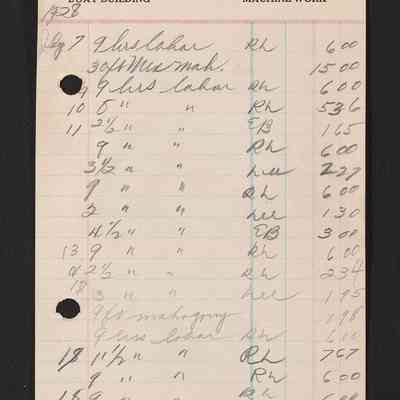 BOAT BUILDING MACHINE WORK
1928
Aug 7 9 hrs labor Rh 6 00
30 ft Mex Mah. 15 00
9 9 hrs labor Rh 6 00
10 8 " " Rh 5 36
11 2 1/2 " " EB 1 65
9 " " Rh 6 00
3 1/2 " " Lee 2 27
9 " " Rh 6 00
2 " " Lee 1 30
4 1/2 " " EB 3 00
13 9 " " Rh 6 00
2 1/2 " " Rh 2 34
3 " " Lee 1 95
9 ft mahogony 1 98
9 hrs labor Rh 6 00
18 11 1/2 " " Rh 7 67
9 " " Rh 6 00
18 9 " " Rh 6 00